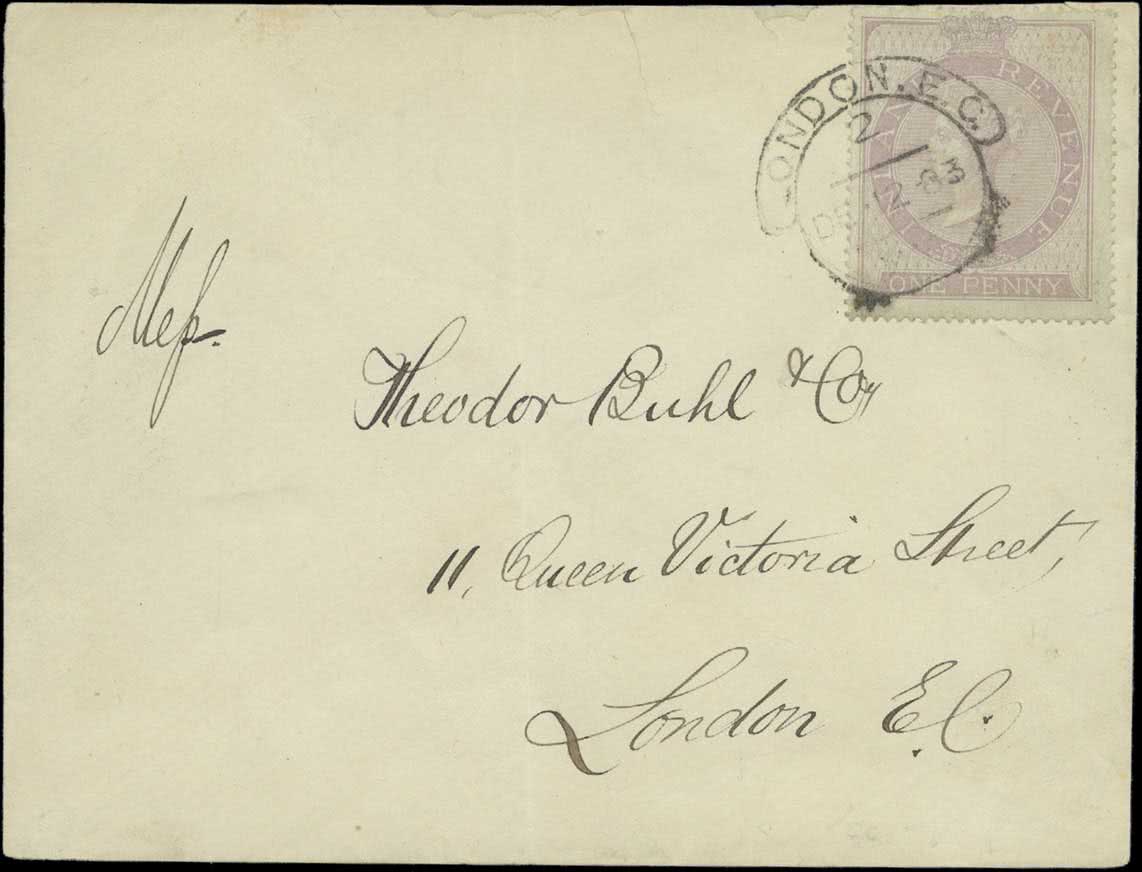 INLAND REVENUE
ONE PENNY
LONDON. E. C.
2
DE 12
83
Mess.
Theodor Buhl & Co
11, Queen Victoria Street,
London E.C.